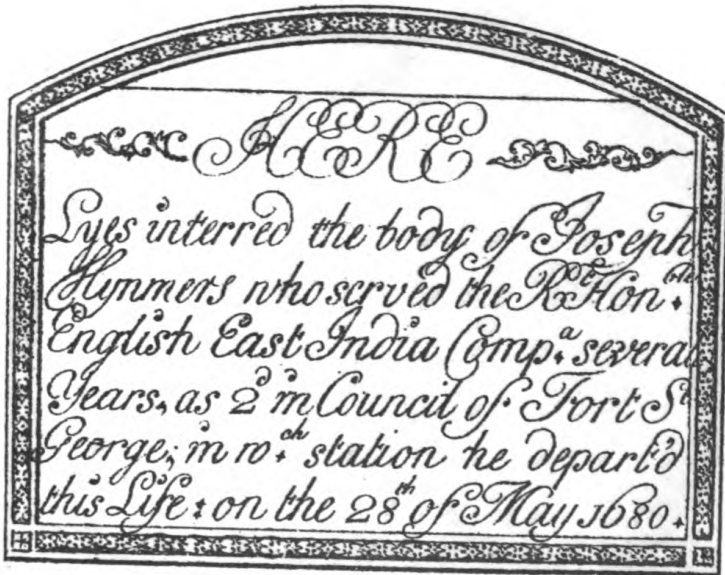 HERE
Lyes interred the body of Joseph
Hynmers who served the Rt Honble
English East India Compa several
Years, as 2d in Council of Fort St
George; in wch station he depart'd
this Life: on the 28th of May 1680.